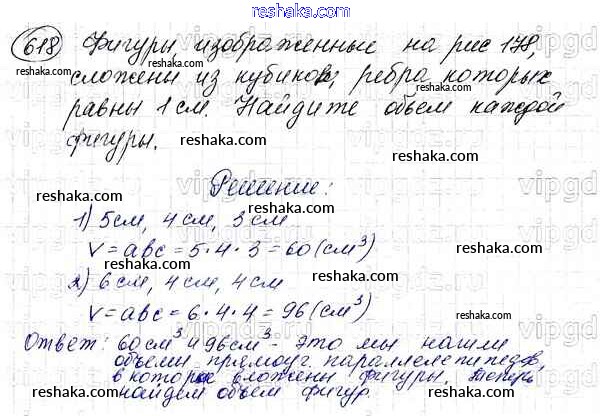 www.reshaka.com
618) Фигуры, изображенные на рис 178,
сложены из кубиков, ребра которых
равны 1 см. Найдите объем каждой
фигуры.
Решение:
1) 5см, 4 см, 3 см
V = abc = 5·4·3 = 60 (см³)
2) 6 см, 4 см, 4 см
V = abc = 6·4·4 = 96 (см³)
Ответ: 60см³ и 96см³ - это мы нашли
объемы прямоуг. параллелепипедов,
в которые вложены фигуры. Теперь
найдем объем фигур.
www.reshaka.com